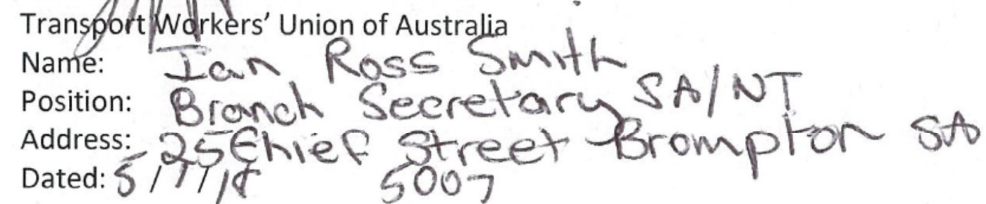 Transport Workers' Union of Australia
Name: Ian Ross Smith
Position: Branch Secretary SA/NT
Address: 25 Chief Street Brompton SA
Dated: 5/7/18 5007